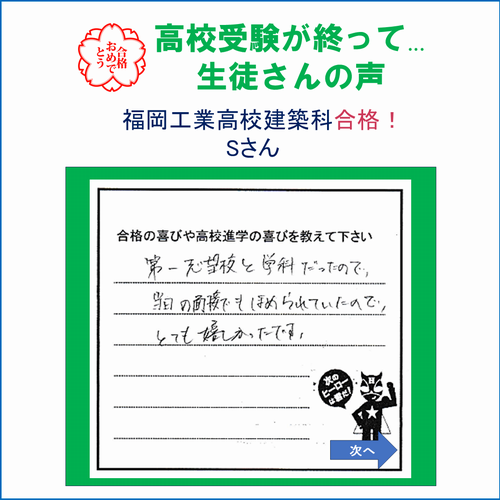 合格
おめで
とう
高校受験が終って...
生徒さんの声
福岡工業高校建築科合格！
Sさん
合格の喜びや高校進学の喜びを教えて下さい
第一志望校と学科だったので、
当日の面接でもほめられていたので、
とても嬉しかったです。
次の
ヒーロー
は君だ！
次へ